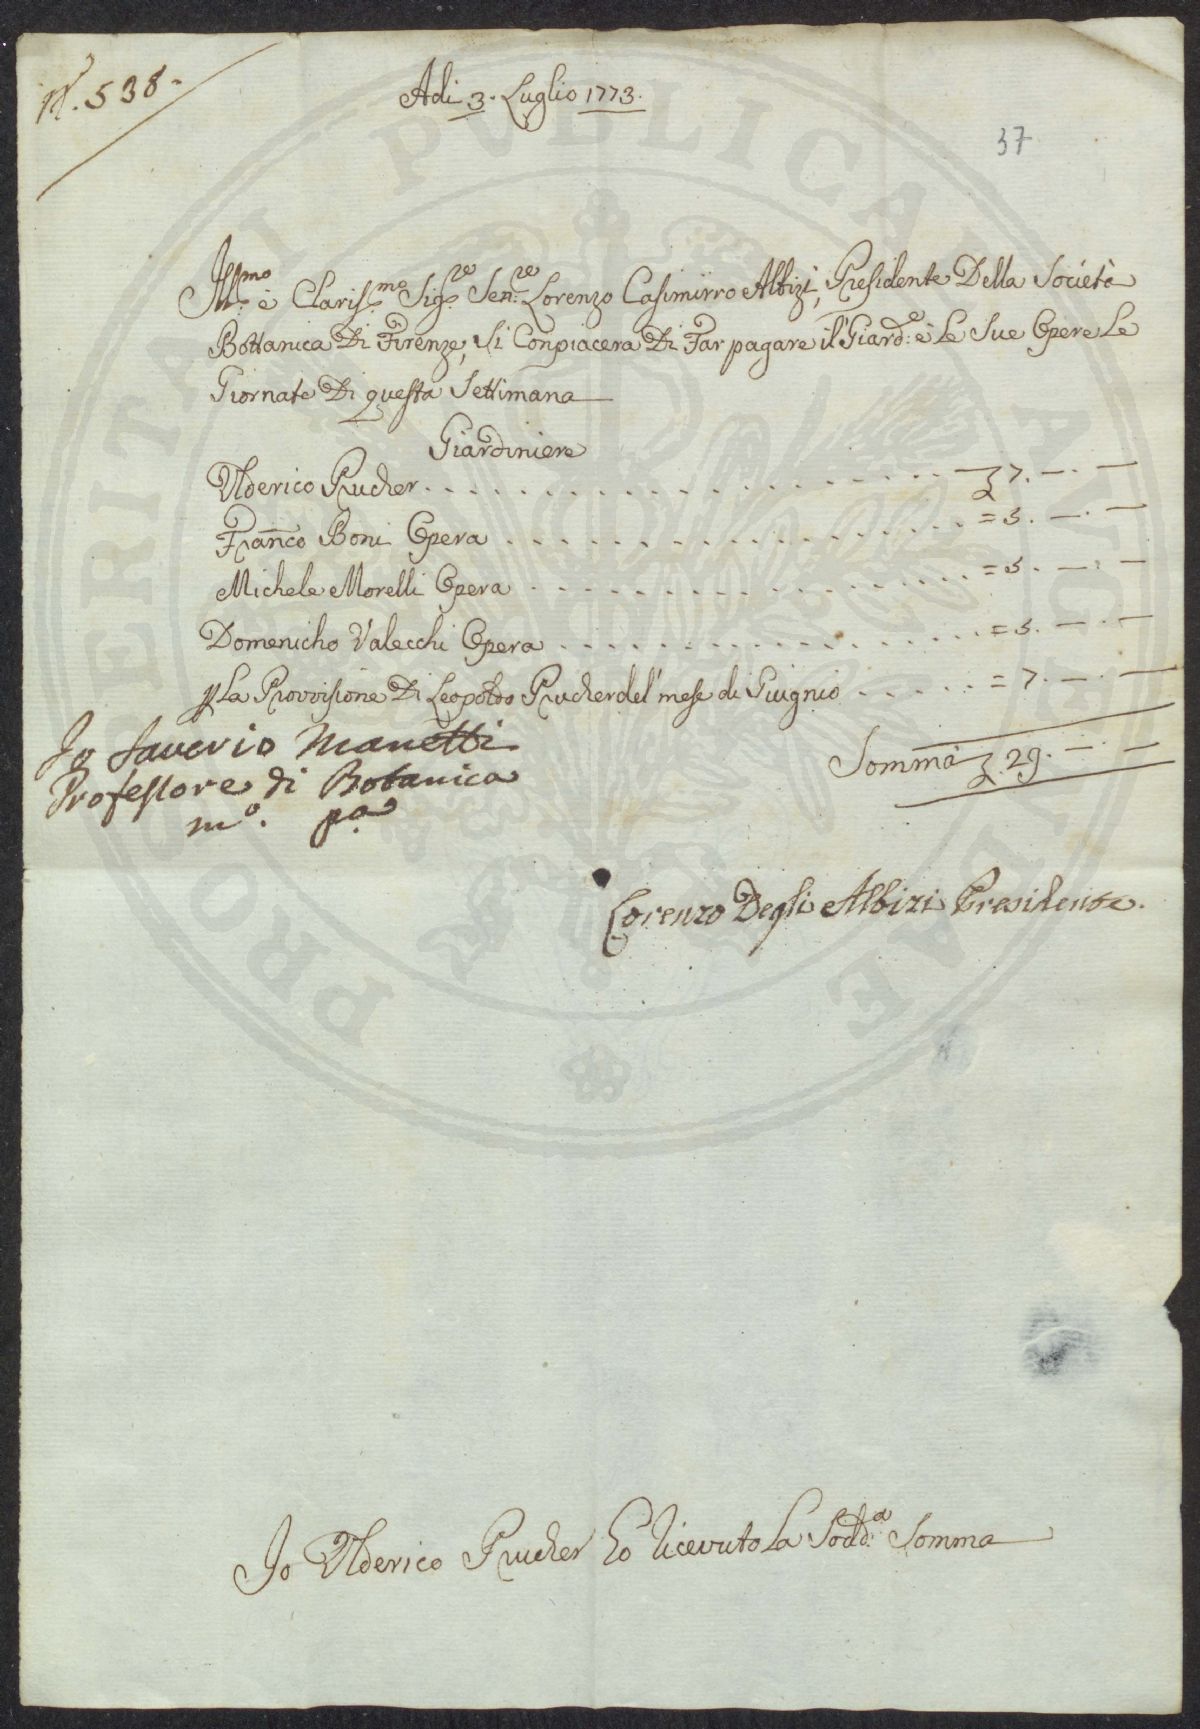 N.° 538.
Adi 3. Luglio 1773.
37
Ill.mo è Claris.mo Sig.re Sen.re Lorenzo Casimirro Albizi, Presidente Della Società
Bottanica Di Firenze, Si Conpiacera Di Far pagare il Giard.e è Le Sue Opere Le
Giornate Di questa Settimana
Giardiniere
Ulderico Prucher . . . . . . . . . . £ 7. — . —
Fran̄co Boni Opera . . . . . . . . . . = 5. — . —
Michele Morelli Opera . . . . . . . . . . = 5. — . —
Domenicho Valecchi Opera . . . . . . . . . . = 5. — . —
La Provvisione Di Leopoldo Prucher del' mese di Giugnio . . . . . = 7. — . —
Somma £. 29. — . —
Io Saverio Manetti
Professore di Botanica
m.o p.a
Lorenzo Degli Albizi Presidente.
Io Ulderico Prucher ho ricevuto La Sodd.a Somma
PROSPERITATI PVBLICAE AVGENDAE